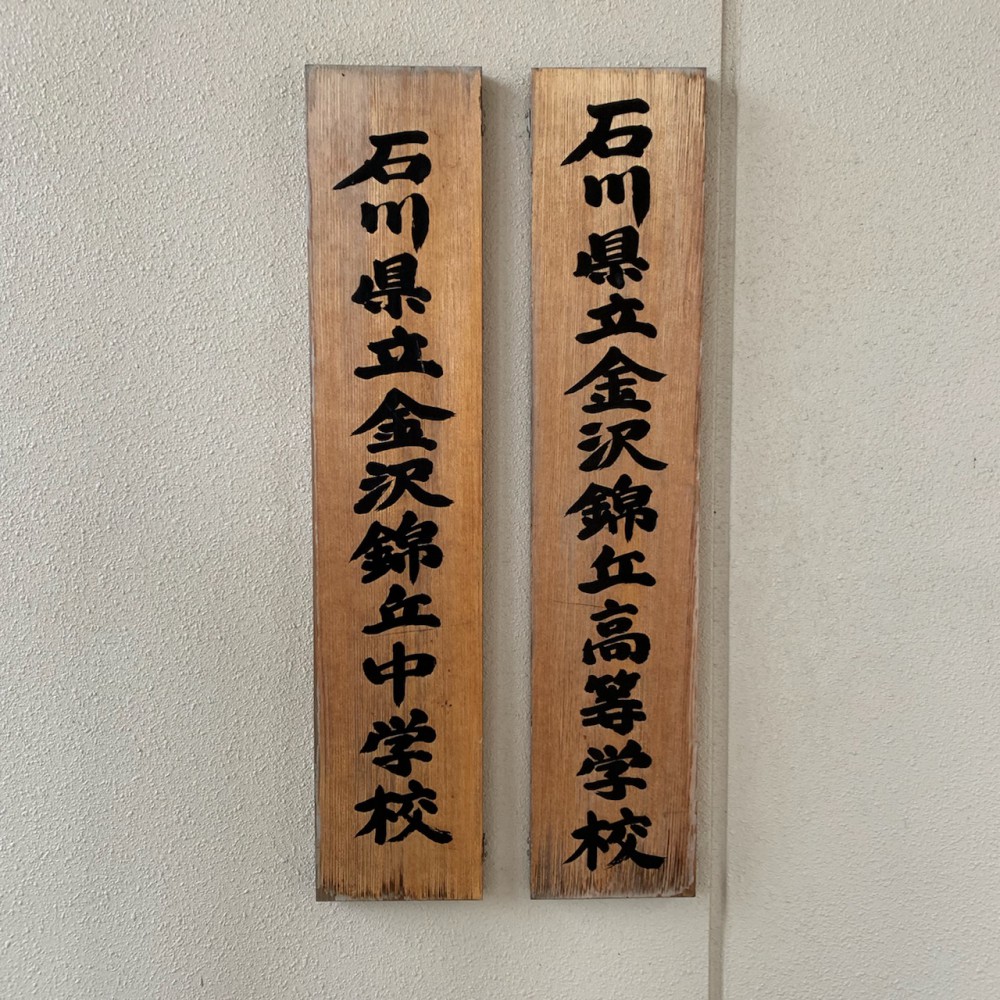 石川県立金沢錦丘高等学校
石川県立金沢錦丘中学校